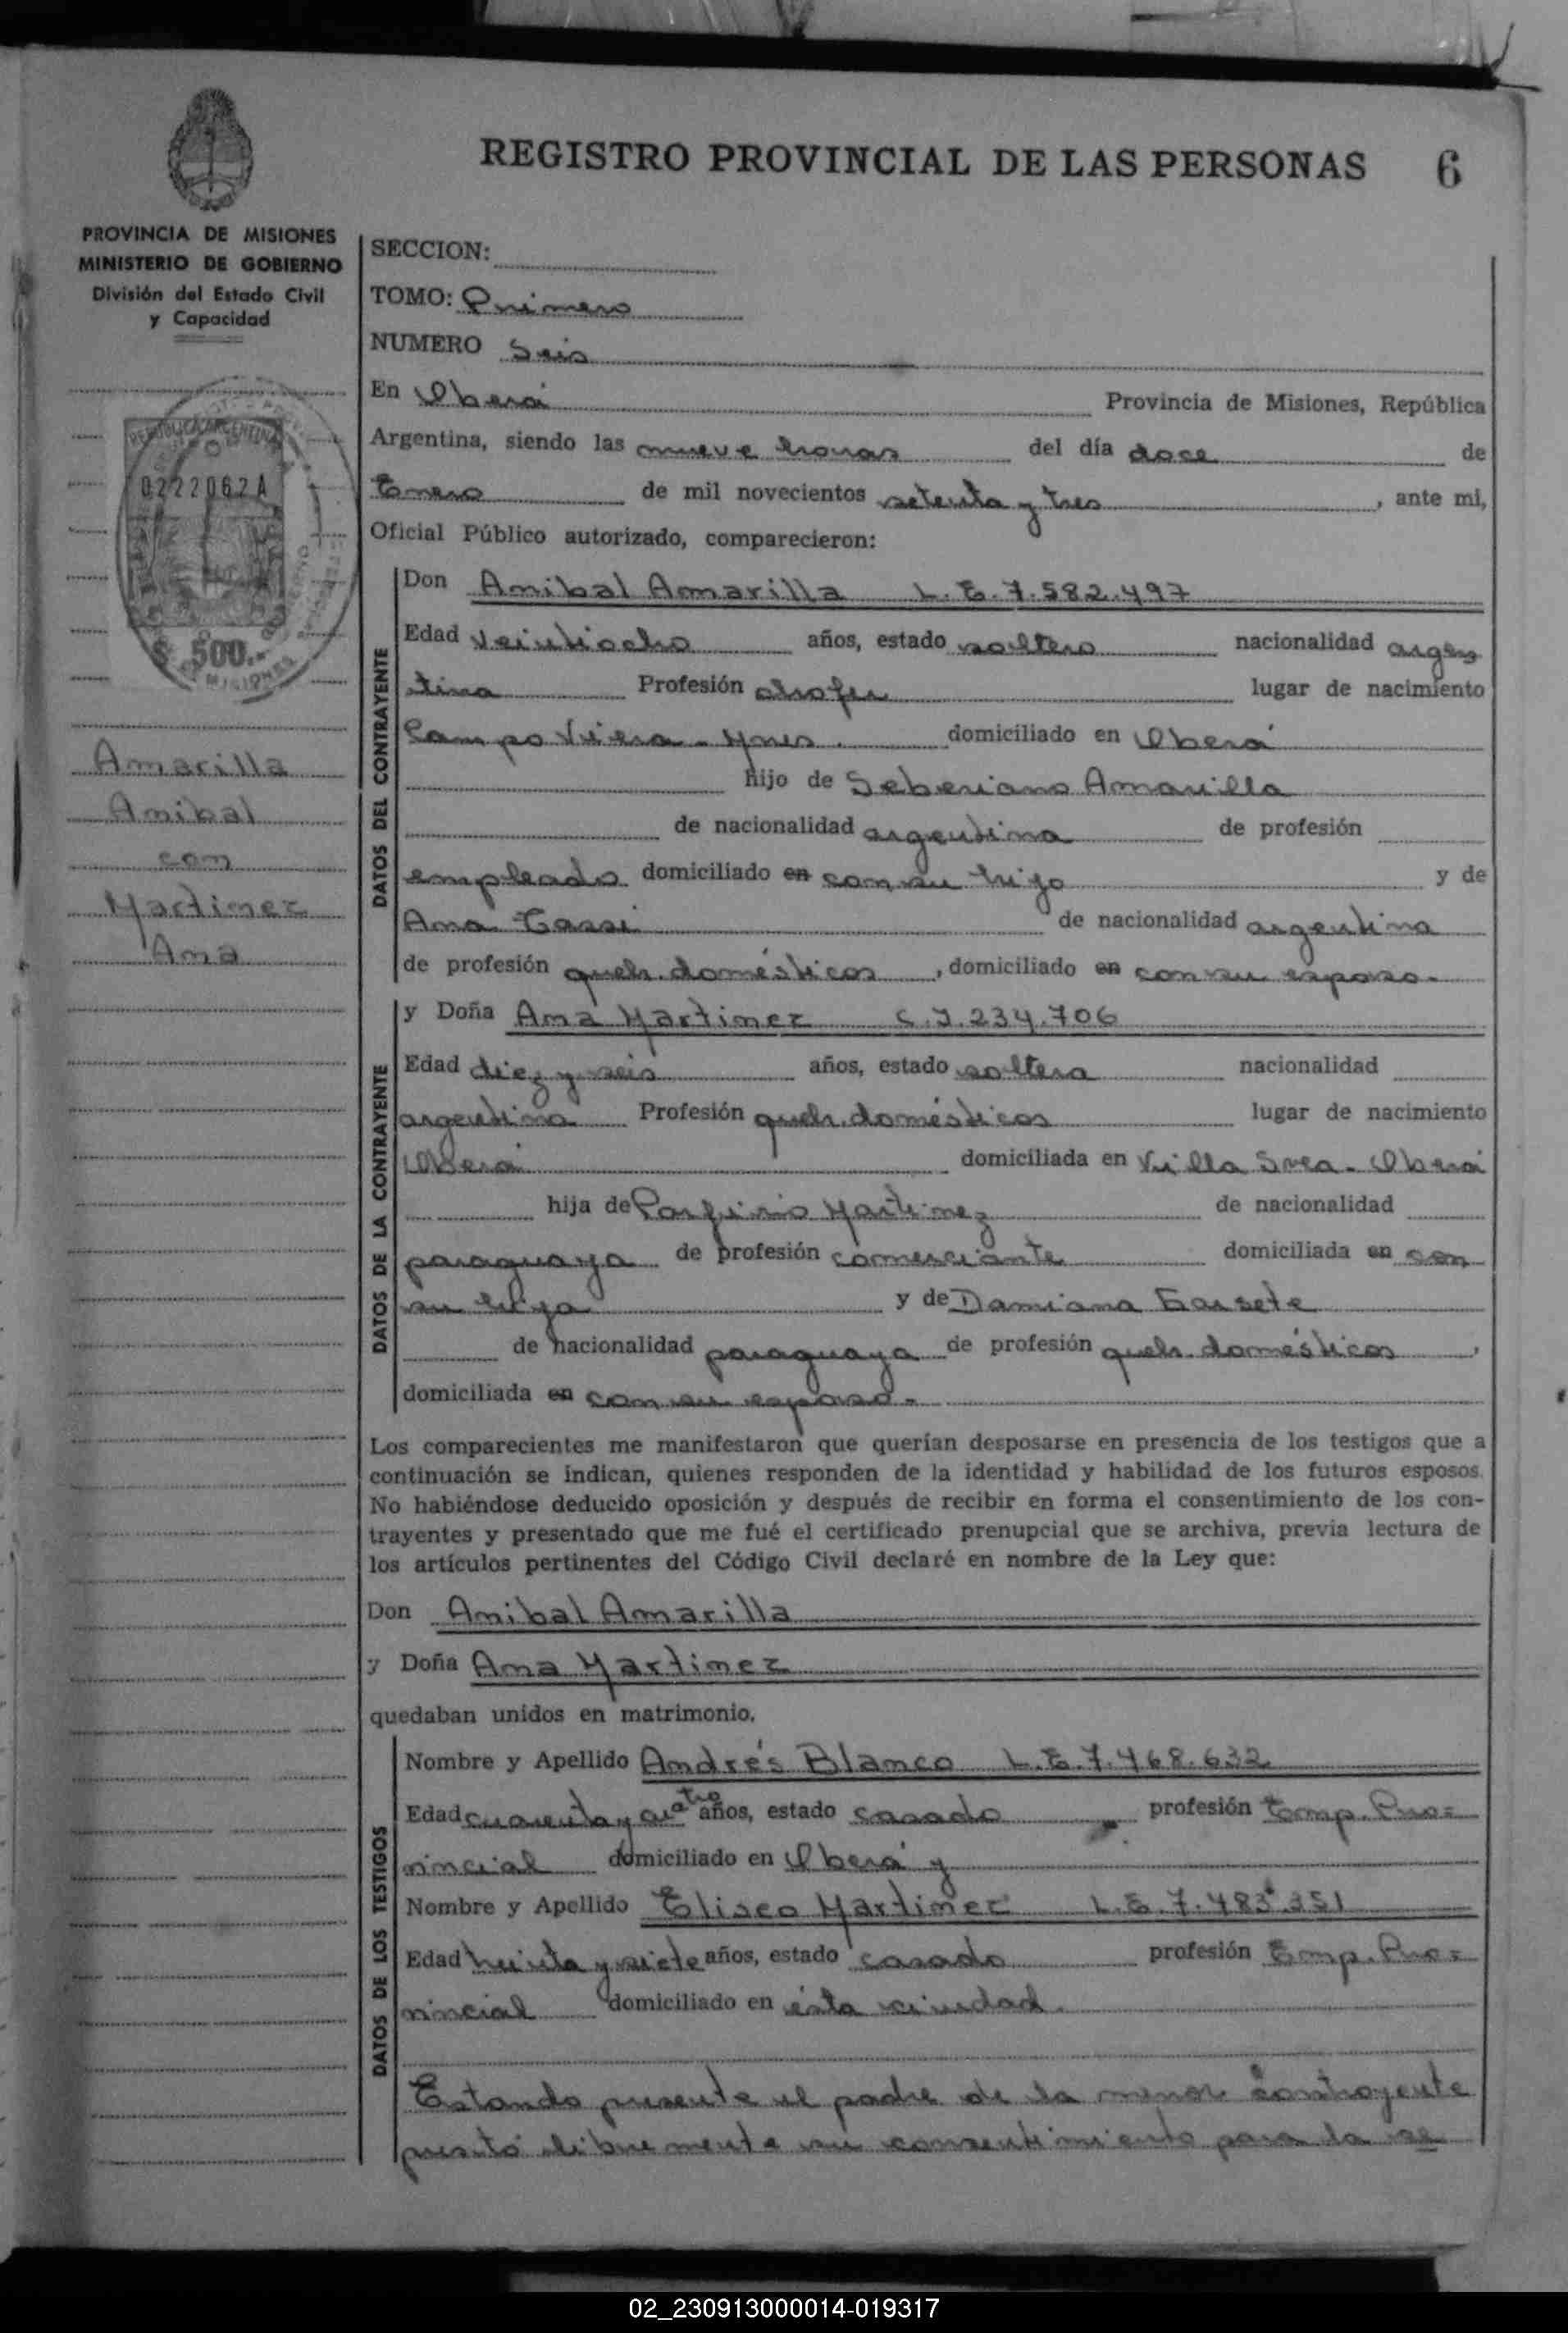 REGISTRO PROVINCIAL DE LAS PERSONAS 6
PROVINCIA DE MISIONES
MINISTERIO DE GOBIERNO
División del Estado Civil
y Capacidad
REPUBLICA ARGENTINA
0222062A
$ 500.-
MISIONES
Amarilla
Anibal
con
Martinez
Ana
SECCION:
TOMO: Primero
NUMERO Seis
En Oberá Provincia de Misiones, República
Argentina, siendo las nueve horas del día doce de
Enero de mil novecientos setenta y tres, ante mi,
Oficial Público autorizado, comparecieron:
DATOS DEL CONTRAYENTE
Don Anibal Amarilla L.E.7.582.497
Edad veintiocho años, estado soltero nacionalidad argen
tina Profesión chofer lugar de nacimiento
Campo Viera - Mnes. domiciliado en Oberá
hijo de Seberiano Amarilla
de nacionalidad argentina de profesión
empleado domiciliado en con su hijo y de
Ana de nacionalidad argentina
de profesión queh. domésticos, domiciliado en con su esposo.
DATOS DE LA CONTRAYENTE
y Doña Ana Martinez C.I.234.706
Edad diez y seis años, estado soltera nacionalidad
argentina Profesión queh. domésticos lugar de nacimiento
Oberá domiciliada en Villa Svea - Oberá
hija de Porfirio Martinez de nacionalidad
paraguaya de profesión comerciante domiciliada en con
su hija y de Damiana Garsete
de nacionalidad paraguaya de profesión queh. domésticos,
domiciliada en con su esposo.
Los comparecientes me manifestaron que querían desposarse en presencia de los testigos que a
continuación se indican, quienes responden de la identidad y habilidad de los futuros esposos.
No habiéndose deducido oposición y después de recibir en forma el consentimiento de los con-
trayentes y presentado que me fué el certificado prenupcial que se archiva, previa lectura de
los artículos pertinentes del Código Civil declaré en nombre de la Ley que:
Don Anibal Amarilla
y Doña Ana Martinez
quedaban unidos en matrimonio.
DATOS DE LOS TESTIGOS
Nombre y Apellido Andrés Blanco L.E.7.468.632
Edad cuarenta y cuatro años, estado casado profesión Emp. Pro=
vincial domiciliado en Oberá y
Nombre y Apellido Eliseo Martinez L.E.7.483.351
Edad treinta y siete años, estado casado profesión Emp. Pro=
vincial domiciliado en ésta ciudad.
Estando presente el padre de la menor contrayente
prestó libremente su consentimiento para la ce
02_230913000014-019317